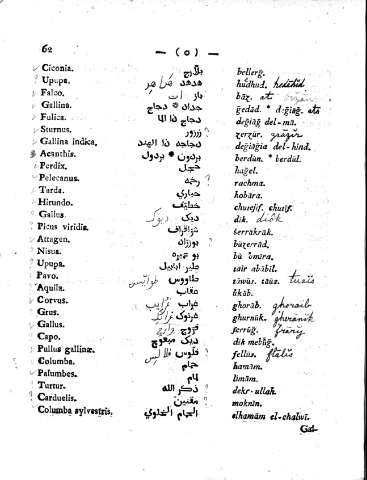 62 — (٥) —
Ciconia. بلارج bellerğ.
Upupa. هدهد hudhud. hedehid
Falco. باز bāz.
Gallina. جداد * دجاج ğedād. * değiağ.
Fulica. دجاج ذا الما değiağ del-mā.
Sturnus. زرزور zerzūr.
Gallina indica. دجاجه ذا الهند değiağia del-hind.
Acanthis. بردون * بردول berdūn. * berdūl.
Perdix. حجل hağel.
Pelecanus. رخمه rachma.
Tarda. حباري hobāra.
Hirundo. خطايف
Gallus. ديك ديوك dik. diok
Picus viridis. شراقراق šerrakrāk.
Attagen. بوزراد būzerād.
Nisus. بو عميره bū ʻomīra.
Upupa. طير ابابيل tair abābīl.
Pavo. طاووس tāwūs. tāūs.
Aquila. عقاب ūkāb.
Corvus. غراب ghorāb. ghoraib
Grus. غرنوك ghurnūk. ghranik
Gallus. فروج ferrūğ.
Capo. ديك مبعوج dīk mebūğ.
Pullus gallinæ. فلوس fellūs.
Columba. حمام hamām.
Palumbes. لمام limām.
Turtur. ذكر الله dekr-ullah.
Carduelis. مقنين moknīn.
Columba sylvestris. الحمام الخلوي elhamām el-chalwī.
Gal-